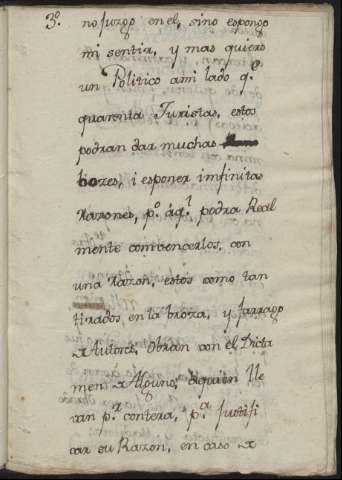 3º. no juzgo en el, sino espongo
mi sentir, y mas quiero
un Politico ami lado qᵉ
quarenta Juristas, estos
podran dar muchas
bozes, i esponer imfinitas
razones, pº áqˡ podra Real
mente comvencerlos, con
una razon, estos como tan
tirados en la broza, y farrago
Autores, Obran con el Dicta
men Alguno, aquien lle
van pʳ contera, pᵃ justifi
car su Razon, en caso